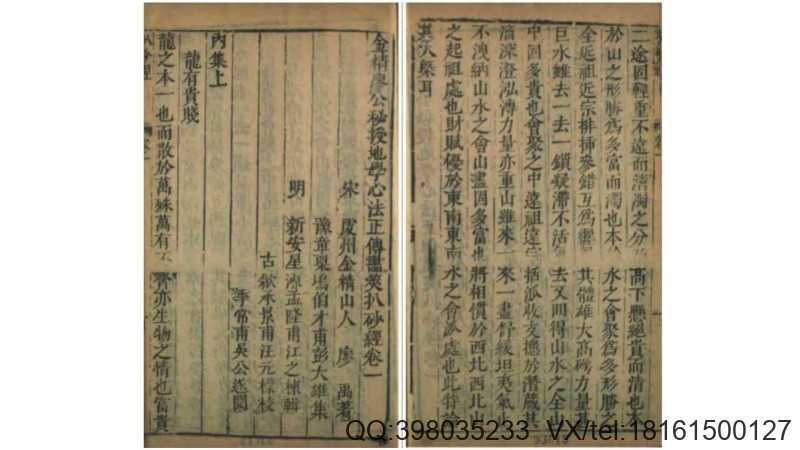 二途固輕重不遠而清濁之分 高下懸絕貴而清也本
於山之形勝為多富而濁也本 水之會聚為多形勝之
全延祖近宗排揷參錯互為 其體雄大高 力量甚
巨水雖去一去一鎖疑滯不活 去又間得山水之全山
中固多貴也會聚之中遠祖遠 派收支 於潛藏其
深澄泓 力量亦重山雖來一 來一盡舒緩坦夷氣
不洩納山水之會山盡固多富也 將相慣於西北西北山
之起祖處也財賦優於東南東南 水之會派處也此特論
其大槩耳
金精廖公秘授地學心法正傳畫筴扒砂經卷一
宋 虔州金精山人 廖 禹著
豫章巢塢伯才甫彭大雄集
明 新安星源孟隆甫江之棟輯
古歙永景甫汪元標校
季常甫吳公遜閱
內集上
龍有貴賤
龍之本一也而散於萬殊萬有 實亦生物之情也富貴
QQ:398035233 VX/tel:18161500127